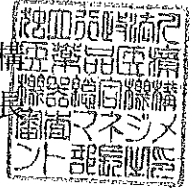 構
長
独立行政法人
医薬品医療
機器総合機構
審査マネジメ
ント部長之印